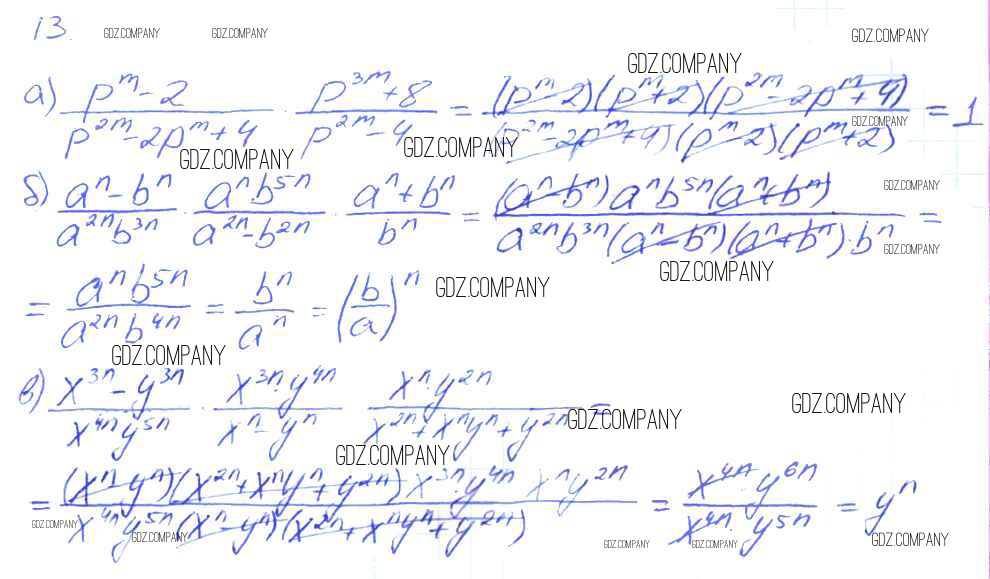 13.
GDZ.COMPANY GDZ.COMPANY GDZ.COMPANY
GDZ.COMPANY
а) (p^m - 2)/(p^{2m} - 2p^m + 4) · (p^{3m} + 8)/(p^{2m} - 4) = ((p^m - 2)(p^m + 2)(p^{2m} - 2p^m + 4))/((p^{2m} - 2p^m + 4)(p^m - 2)(p^m + 2)) = 1
GDZ.COMPANY
GDZ.COMPANY GDZ.COMPANY
б) (a^n - b^n)/(a^{2n}b^{3n}) · (a^n b^{5n})/(a^{2n} - b^{2n}) · (a^n + b^n)/(b^n) = ((a^n - b^n)a^n b^{5n}(a^n + b^n))/(a^{2n}b^{3n}(a^n - b^n)(a^n + b^n)·b^n) =
GDZ.COMPANY
GDZ.COMPANY
GDZ.COMPANY
= (a^n b^{5n})/(a^{2n} b^{4n}) = b^n/a^n = (b/a)^n
GDZ.COMPANY
GDZ.COMPANY
в) (x^{3n} - y^{3n})/(x^{4n}y^{5n}) · (x^{3n}·y^{4n})/(x^n - y^n) (x^n·y^{2n})/(x^{2n} + x^n y^n + y^{2n}) =
GDZ.COMPANY GDZ.COMPANY
GDZ.COMPANY
= ((x^n - y^n)(x^{2n} + x^n y^n + y^{2n}) x^{3n}·y^{4n} x^n y^{2n})/(x^{4n} y^{5n}(x^n - y^n)(x^{2n} + x^n y^n + y^{2n})) = (x^{4n}·y^{6n})/(x^{4n}·y^{5n}) = y^n
GDZ.COMPANY GDZ.COMPANY GDZ.COMPANY GDZ.COMPANY GDZ.COMPANY